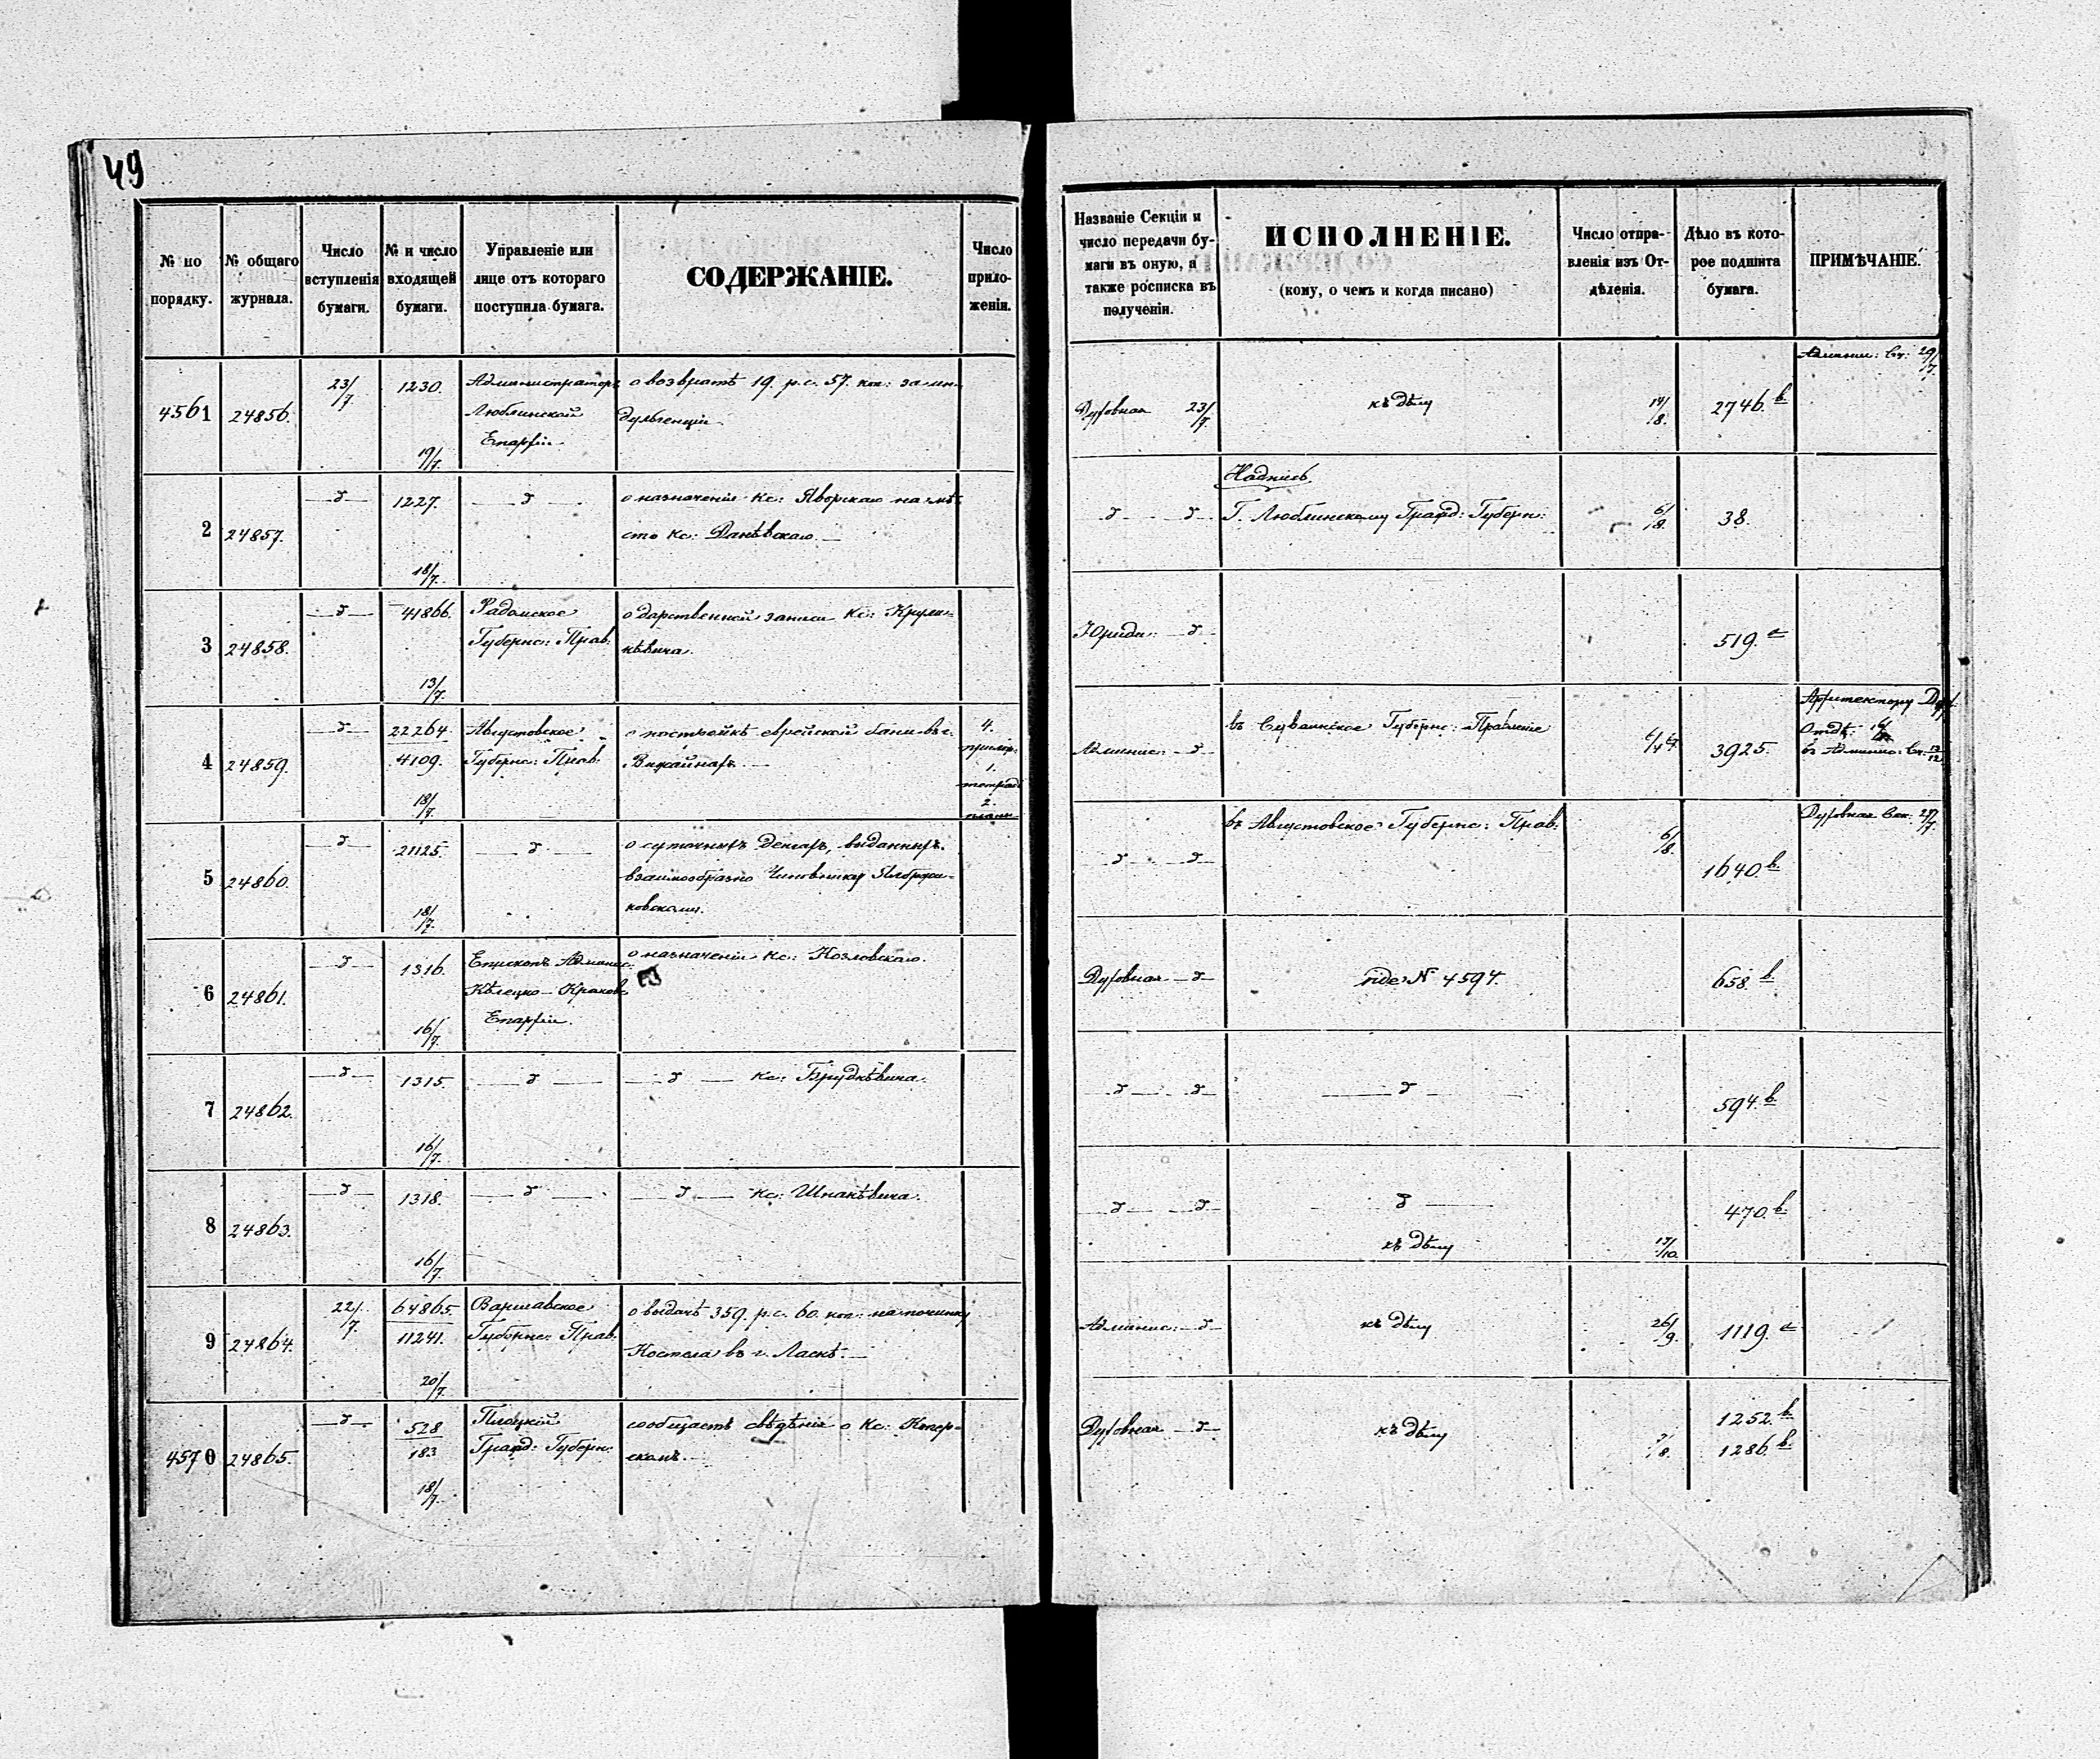 49
№ по порядку.
№ общаго журнала.
Число вступленія бумаги.
№ и число входящей бумаги.
Управленіе или лице отъ котораго поступила бумага.
СОДЕРЖАНІЕ.
Число приложеній.
Названіе Секціи и число передачи бумаги въ оную, а также росписка въ полученіи.
ИСПОЛНЕНІЕ.
(кому, о чемъ и когда писано)
Число отправленія изъ Отдѣленія.
Дѣло въ которое подшита бумага.
ПРИМѢЧАНІЕ.
4561 24856. 23/7. 1230. 19/7. Администраторъ
Люблинской
Епархіи
о возвратѣ 19. р. с. 57. коп: за ин-
дульгенціи.
Духовная 23/7. къ дѣлу 14/8. 2746. b. Админи: Сч: 29/7.
2 24857. —д— 1227. 18/7. —д—
о назначеніи Кс: Яворскаго на мѣ-
сто Кс: Данѣвскаго.—
—д— —д—
Надпись.
Г. Люблинскому Гражд: Губерн: 6/8. 38.
3 24858. —д— 41866. 13/7. Радомское
Губернс: Прав:
о дарственной записи Кс: Крули-
кѣвича.
Юриди: —д— 519. a
4 24859. —д— 22264. 4109. 18/7. Августовское
Губернс: Прав:
о постройкѣ еврейской бани въ г.
Вижайнахъ.—
4. прилож:
1. тетрадь
2. плана
Админис: —д— въ Сувалкское Губернс: Правленіе 3925.
Архитектору Дух:
Отдѣ:
въ Админис: Сч: 13/12.
5 24860. —д— 21125. 18/7. —д—
о суточныхъ деньгахъ, выданныхъ
взаимообразно Чиновнику
ковскому.
—д— —д— въ Августовское Губернс: Прав: 6/8. 1640. b. Духовная Сек: 29/7.
6 24861. —д— 1316. 16/7. Епископъ Админис:
Кѣлецко-Краковс:
Епархіи.
о назначеніи Кс: Козловскаго.
Духовная —д— vide № 4594. 658. b.
7 24862. —д— 1315. 16/7. —д— —д— Кс: Брудкѣвича.
—д— —д— —д— 594. b.
8 24863. —д— 1318. 16/7. —д— —д— Кс: Шпакѣвича.
—д— —д— —д— 470. b.
къ дѣлу 17/10.
9 24864. 22/7. 64865. 11241. 20/7. Варшавское
Губернс: Прав:
о выдачѣ 359. р. с. 60. коп: на починку
Костела въ г. Ласкѣ.—
Админис: —д— къ дѣлу 26/9. 1119. a
4570 24865. —д— 528 183 18/7. Плоцкій
Гражд: Губерн:
сообщаетъ свѣдѣнія о Кс: Копер-
скомъ.—
Духовная —д— къ дѣлу 1252. b.
1286. b.